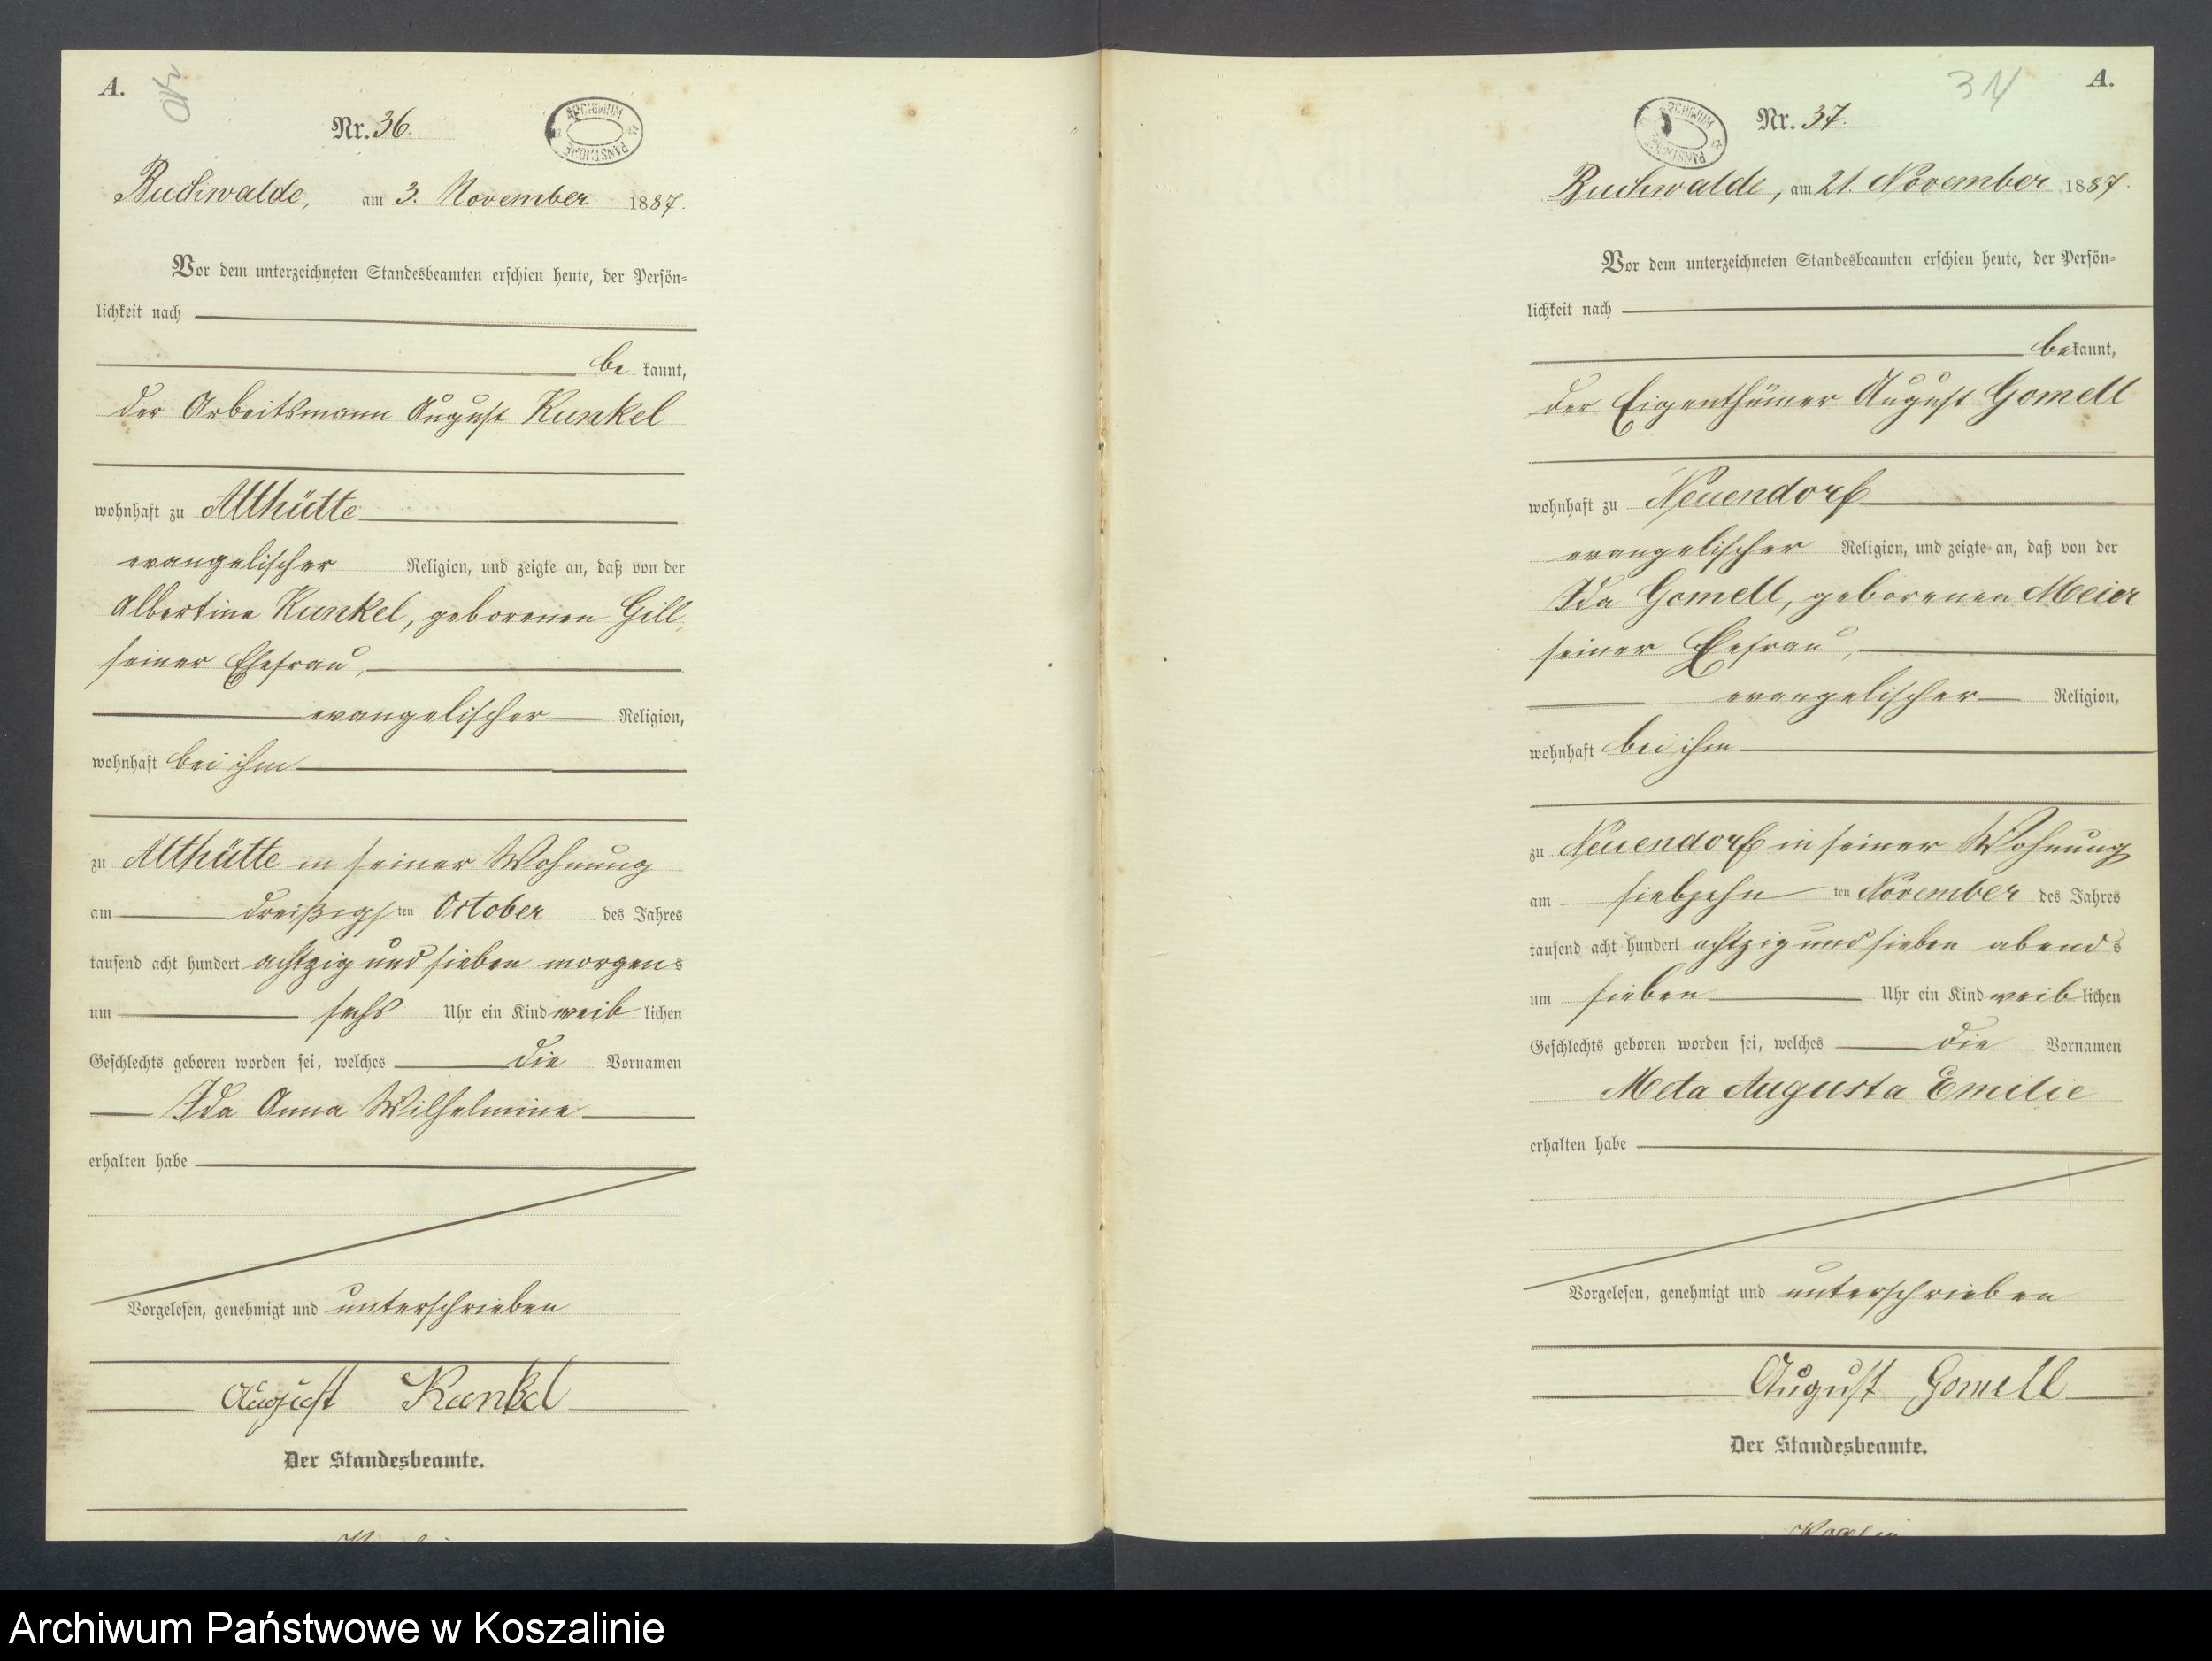 A.
Nr. 36.
ARCHIWUM PAŃSTWOWE
Buchwalde, am 3. November 1887.
Vor dem unterzeichneten Standesbeamten erschien heute, der Persön-
lichkeit nach
be kannt,
der Arbeitsmann August Kunkel
wohnhaft zu Althütte
evangelischer Religion, und zeigte an, daß von der
Albertine Kunkel, geborenen Gill,
seiner Ehefrau,
evangelischer Religion,
wohnhaft bei ihm
zu Althütte in seiner Wohnung
am dreißigsten October des Jahres
tausend acht hundert achtzig und sieben morgens
um sechs Uhr ein Kind weib lichen
Geschlechts geboren worden sei, welches die Vornamen
Ida Anna Wilhelmine
erhalten habe
Vorgelesen, genehmigt und unterschrieben
August Kunkel
Der Standesbeamte.
A.
Nr. 37.
ARCHIWUM PAŃSTWOWE
Buchwalde, am 21. November 1887.
Vor dem unterzeichneten Standesbeamten erschien heute, der Persön-
lichkeit nach
bekannt,
der Eigenthümer August Gomell
wohnhaft zu Neuendorf
evangelischer Religion, und zeigte an, daß von der
Ida Gomell, geborenen Meier
seiner Ehefrau,
evangelischer Religion,
wohnhaft bei ihm
zu Neuendorf in seiner Wohnung
am siebzehn ten November des Jahres
tausend acht hundert achtzig und sieben abends
um sieben Uhr ein Kind weiblichen
Geschlechts geboren worden sei, welches die Vornamen
Meta Augusta Emilie
erhalten habe
Vorgelesen, genehmigt und unterschrieben
August Gomell
Der Standesbeamte.
Archiwum Państwowe w Koszalinie